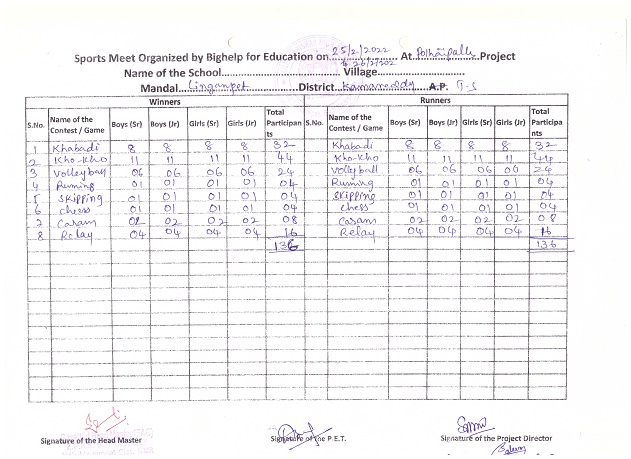 Sports Meet Organized by Bighelp for Education on 25/2/2022 At Polhaipalli Project
to 26/2/202
Name of the School Village
Mandal Lingampet District Kamareddy A.P. T-S
Winners Runners
S.No. Name of the Contest / Game Boys (Sr) Boys (Jr) Girls (Sr) Girls (Jr) Total Participants S.No. Name of the Contest / Game Boys (Sr) Boys (Jr) Girls (Sr) Girls (Jr) Total Participants
1 Khabadi 8 8 8 8 32 Khabadi 8 8 8 8 32
2 Kho-Kho 11 11 11 11 44 Kho-Kho 11 11 11 11 44
3 Volleyball 06 06 06 06 24 Volleyball 06 06 06 06 24
4 Running 01 01 01 01 04 Running 01 01 01 01 04
5 Skipping 01 01 01 01 04 Skipping 01 01 01 01 04
6 Chess 01 01 01 01 04 Chess 01 01 01 01 04
7 Caram 02 02 02 02 08 Caram 02 02 02 02 08
8 Relay 04 04 04 04 16 Relay 04 04 04 04 16
136 136
Signature of the Head Master Signature of the P.E.T. Signature of the Project Director